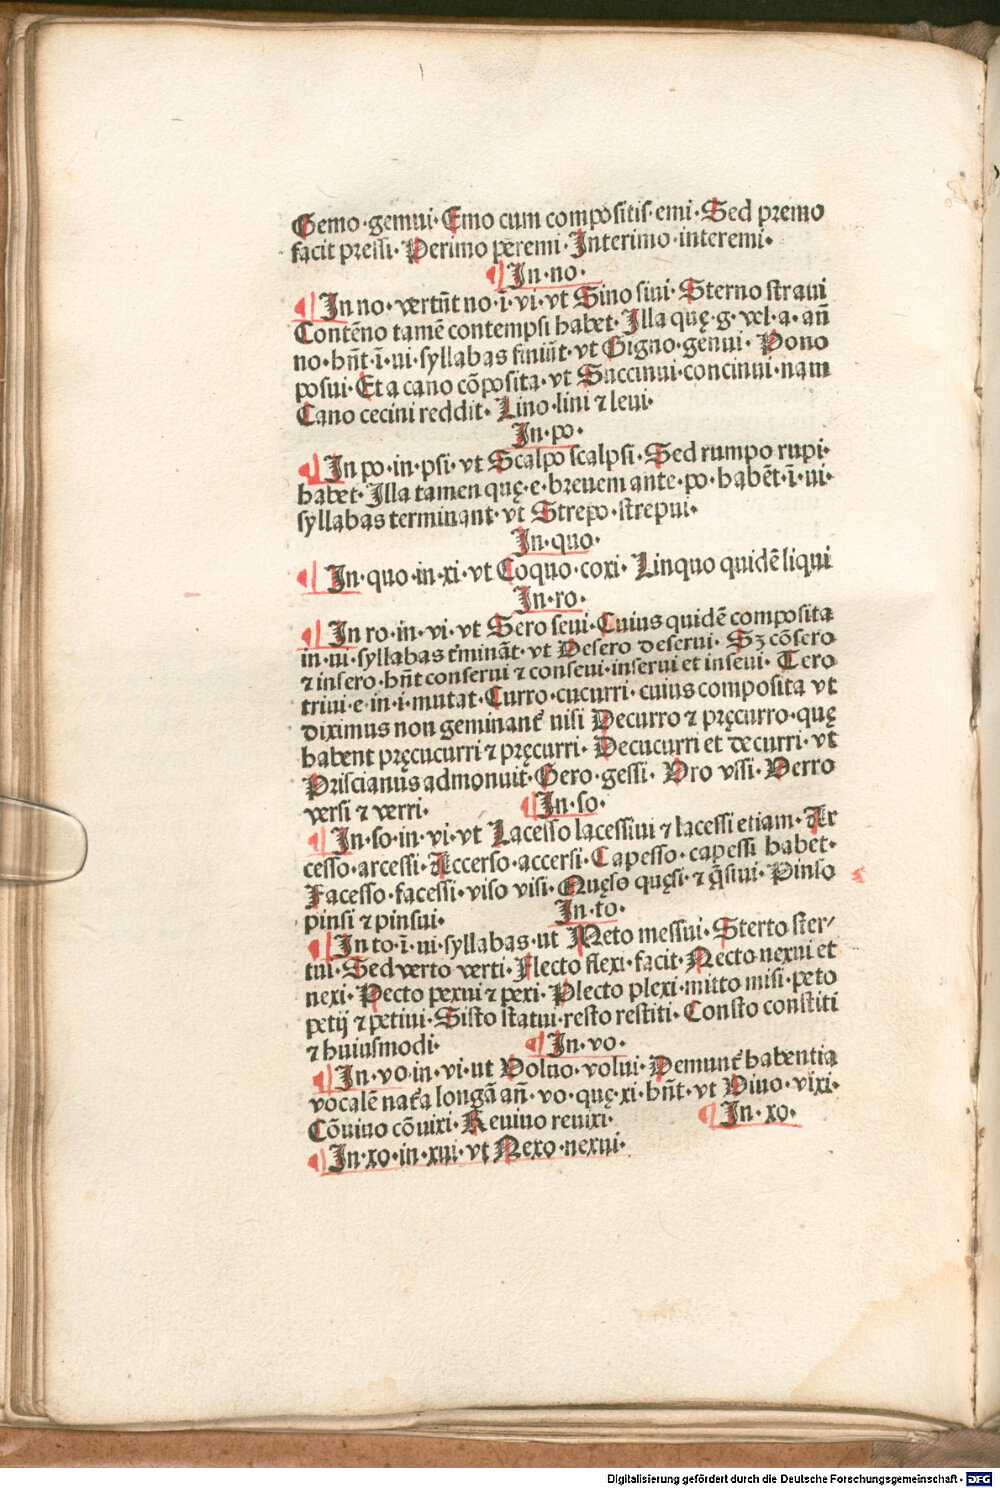 Gemo·gemui·Emo cum compositis·emi·Sed premo
facit pressi·Perimo peremi·Interimo·interemi·
¶ In·no·
¶ In no·vertūt no·ī·vi·vt Sino sini·Sterno straui
Contēno tamē contempsi habet·Illa quę·g·vel·a·añ
no·hñt·ī·ui·syllabas finiūt·vt Gigno·genui·Pono
posui·Et a cano cōposita·vt Succinui·concinui·nam
Cano cecini reddit·Lino·lini ⁊ leui·
In·po·
¶ In po·in·psi·vt Scalpo scalpsi·Sed rumpo rupi·
habet·Illa tamen quę·e·breuem ante·po·habēt·ī·ui·
syllabas terminant·vt Strepo·strepui·
In·quo·
¶ In·quo·in·xi·vt Coquo·coxi·Linquo quidē liqui
In·ro·
¶ In ro·in·vi·vt Sero seui·Cuius quidē composita
in·ui·syllabas t'mināt·vt Desero deserui·Sꝫ cōsero
⁊ insero·hñt conserui ⁊ conseui·inserui et inseui·Tero
triui·e·in·i·mutat·Curro·cucurri·cuius composita vt
diximus non geminant' nisi Decurro ⁊ pręcurro·quę
habent pręcucurri ⁊ pręcurri·Decucurri et decurri·vt
Priscianus admonuit·Gero·gessi·Uro vssi·Verro
versi ⁊ verri·
¶ In·so·
¶ In·so·in·vi·vt Lacesso lacessiui ⁊ lacessi etiam·Ar
cesso·arcessi·Accerso·accersi·Capesso·capessi habet·
Facesso·facessi·viso visi·Quęso quęsi·⁊ q̄siui·Pinso
pinsi ⁊ pinsui·
In·to·
¶ In to·ī·ui·syllabas·ut Meto messui·Sterto ster-
tui·Sed verto verti·Flecto flexi·facit·Necto nexui et
nexi·Pecto pexui ⁊ pexi·Plecto plexi·mitto misi·peto
petij ⁊ petiui·Sisto statui·resto restiti·Consto constiti
⁊ huiusmodi·
¶ In·vo·
¶ In·vo·in·vi·ut Voluo·volui·Demunt' habentia
vocalē nat'a longā añ·vo·quę·xi·hñt·vt Viuo·vixi·
Cōuiuo cōuixi·Reuiuo reuixi·
¶ In·xo·
¶ In·xo·in·xui·vt Nexo·nexui·
Digitalisierung gefördert durch die Deutsche Forschungsgemeinschaft - DFG